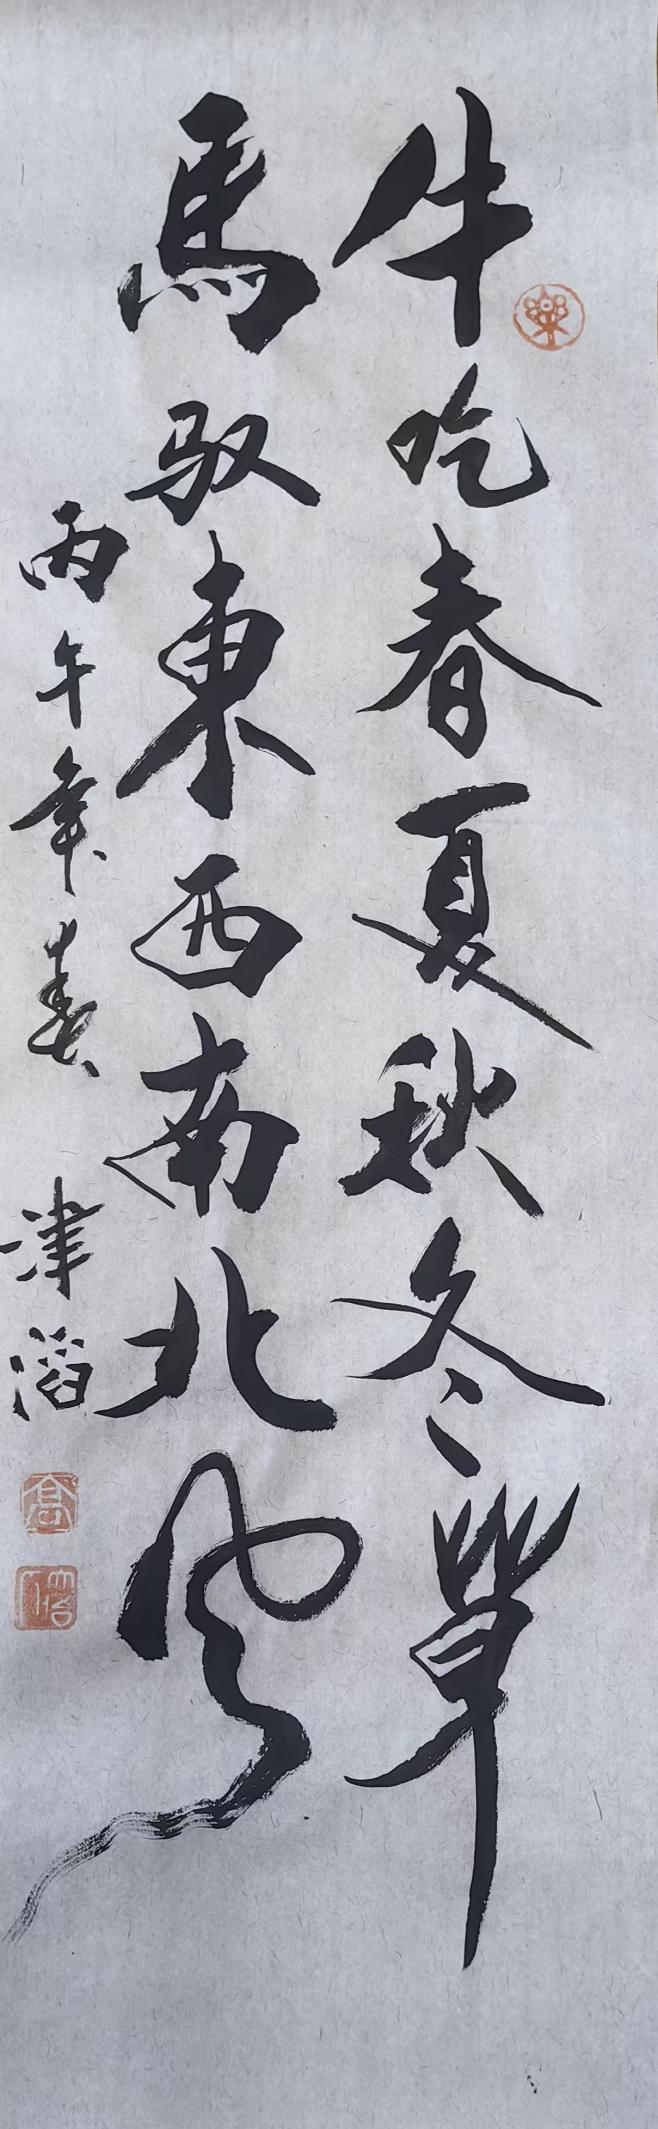 牛吃春夏秋冬草
馬驭東西南北风
丙午年春 津滔